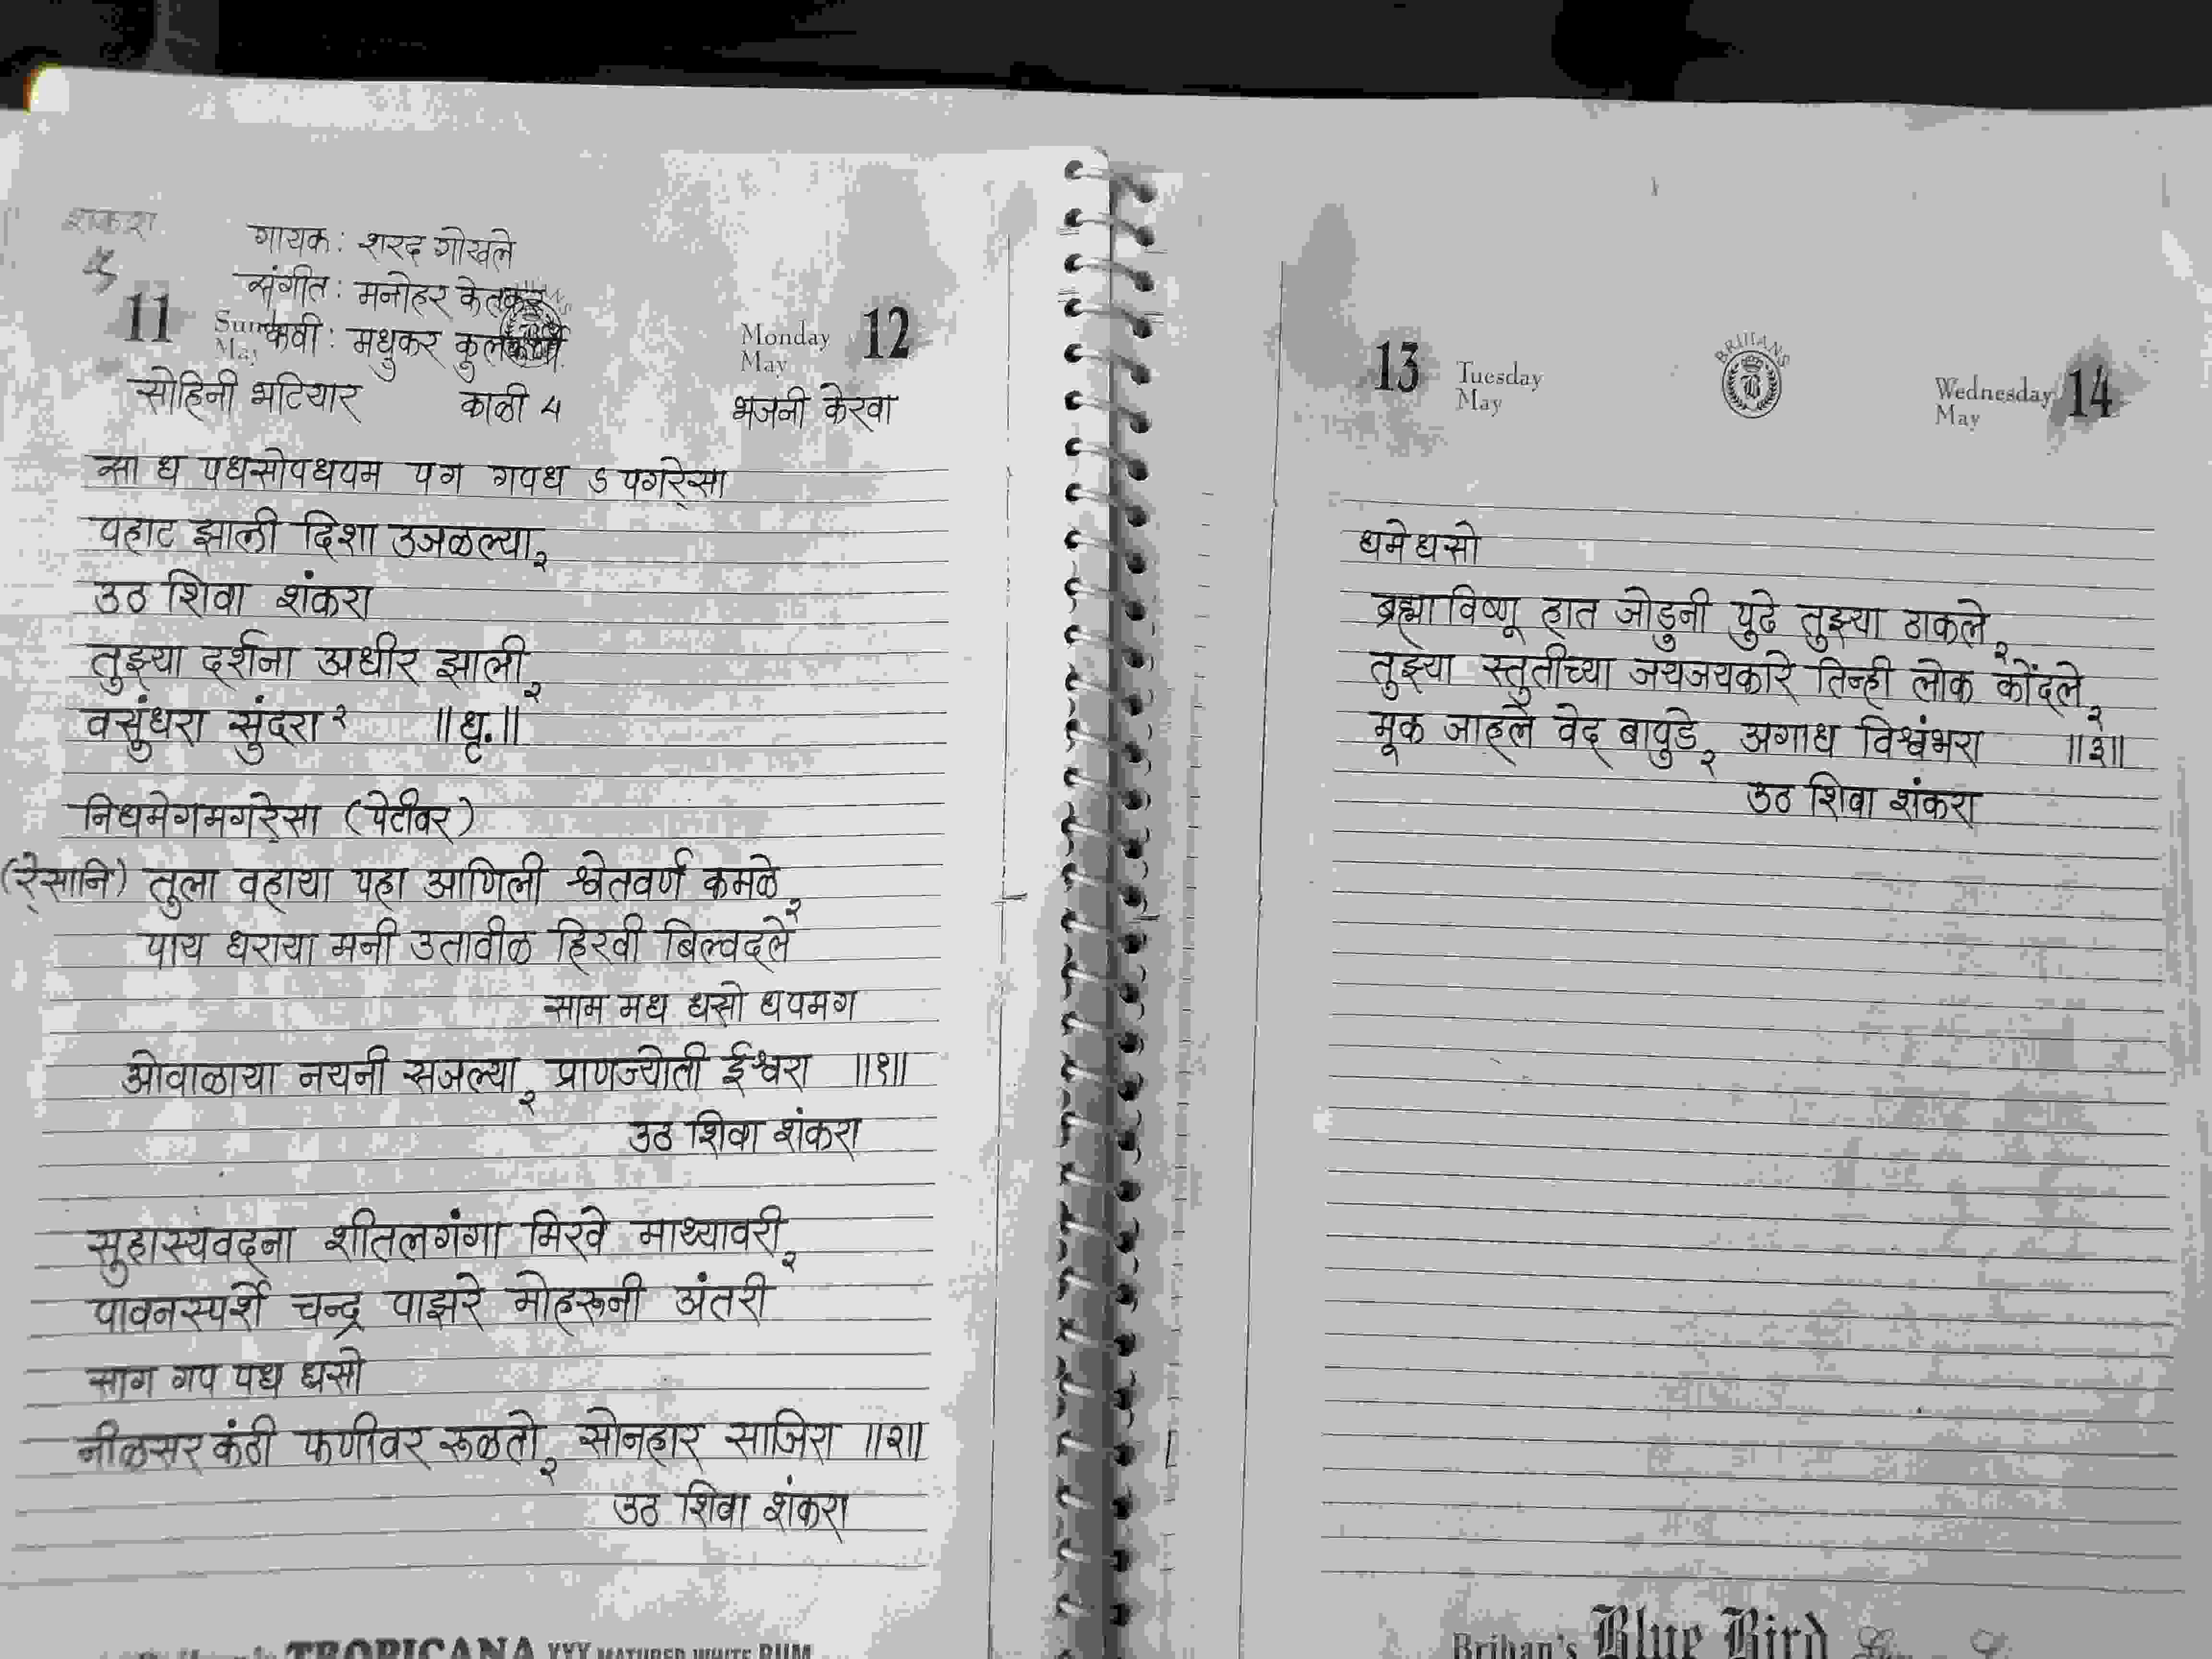 शंकरा
गायक: शरद गोखले
संगीत: मनोहर केतकर
11 Sunday May कवी: मधुकर कुलकर्णी
Monday May 12
सोहिनी भटियार काळी ४ भजनी केरवा
सा ध पधसोपधपम पग गपध ऽ पगरे्सा
पहाट झाली दिशा उजळल्या,२
उठ शिवा शंकरा
तुझ्या दर्शना अधीर झाली,२
वसुंधरा सुंदरा २ ॥धृ.॥
निधमेगमगरे्सा (पेटीवर)
(रे्सानि) तुला वहाया पहा आणिली श्वेतवर्ण कमळे,२
पाय धराया मनी उतावीळ हिरवी बिल्वदले
साम मध धसो धपमग
ओवाळाया नयनी सजल्या,२ प्राणज्योती ईश्वरा ॥१॥
उठ शिवा शंकरा
सुहास्यवदना शीतलगंगा मिरवे माथ्यावरी,२
पावनस्पर्शे चन्द्र पाझरे मोहरूनी अंतरी
साग गप पध धसो
नीळसर कंठी फणीवर रूळतो,२ सोनहार साजिरा ॥२॥
उठ शिवा शंकरा
TROPICANA XXX MATURED WHITE RUM
13 Tuesday May
BRIHANS
B
Wednesday May 14
धमेधसो
ब्रह्मा विष्णू हात जोडुनी पुढे तुझ्या ठाकले,२
तुझ्या स्तुतीच्या जयजयकारे तिन्ही लोक कोंदले,२
मूक जाहले वेद बापुडे,२ अगाध विश्वंभरा ॥३॥
उठ शिवा शंकरा
Brihan's Blue Bird